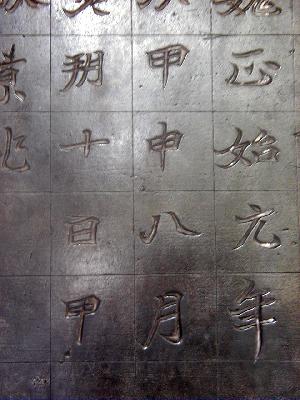 魏正始元年
次甲申八月
朔十日甲